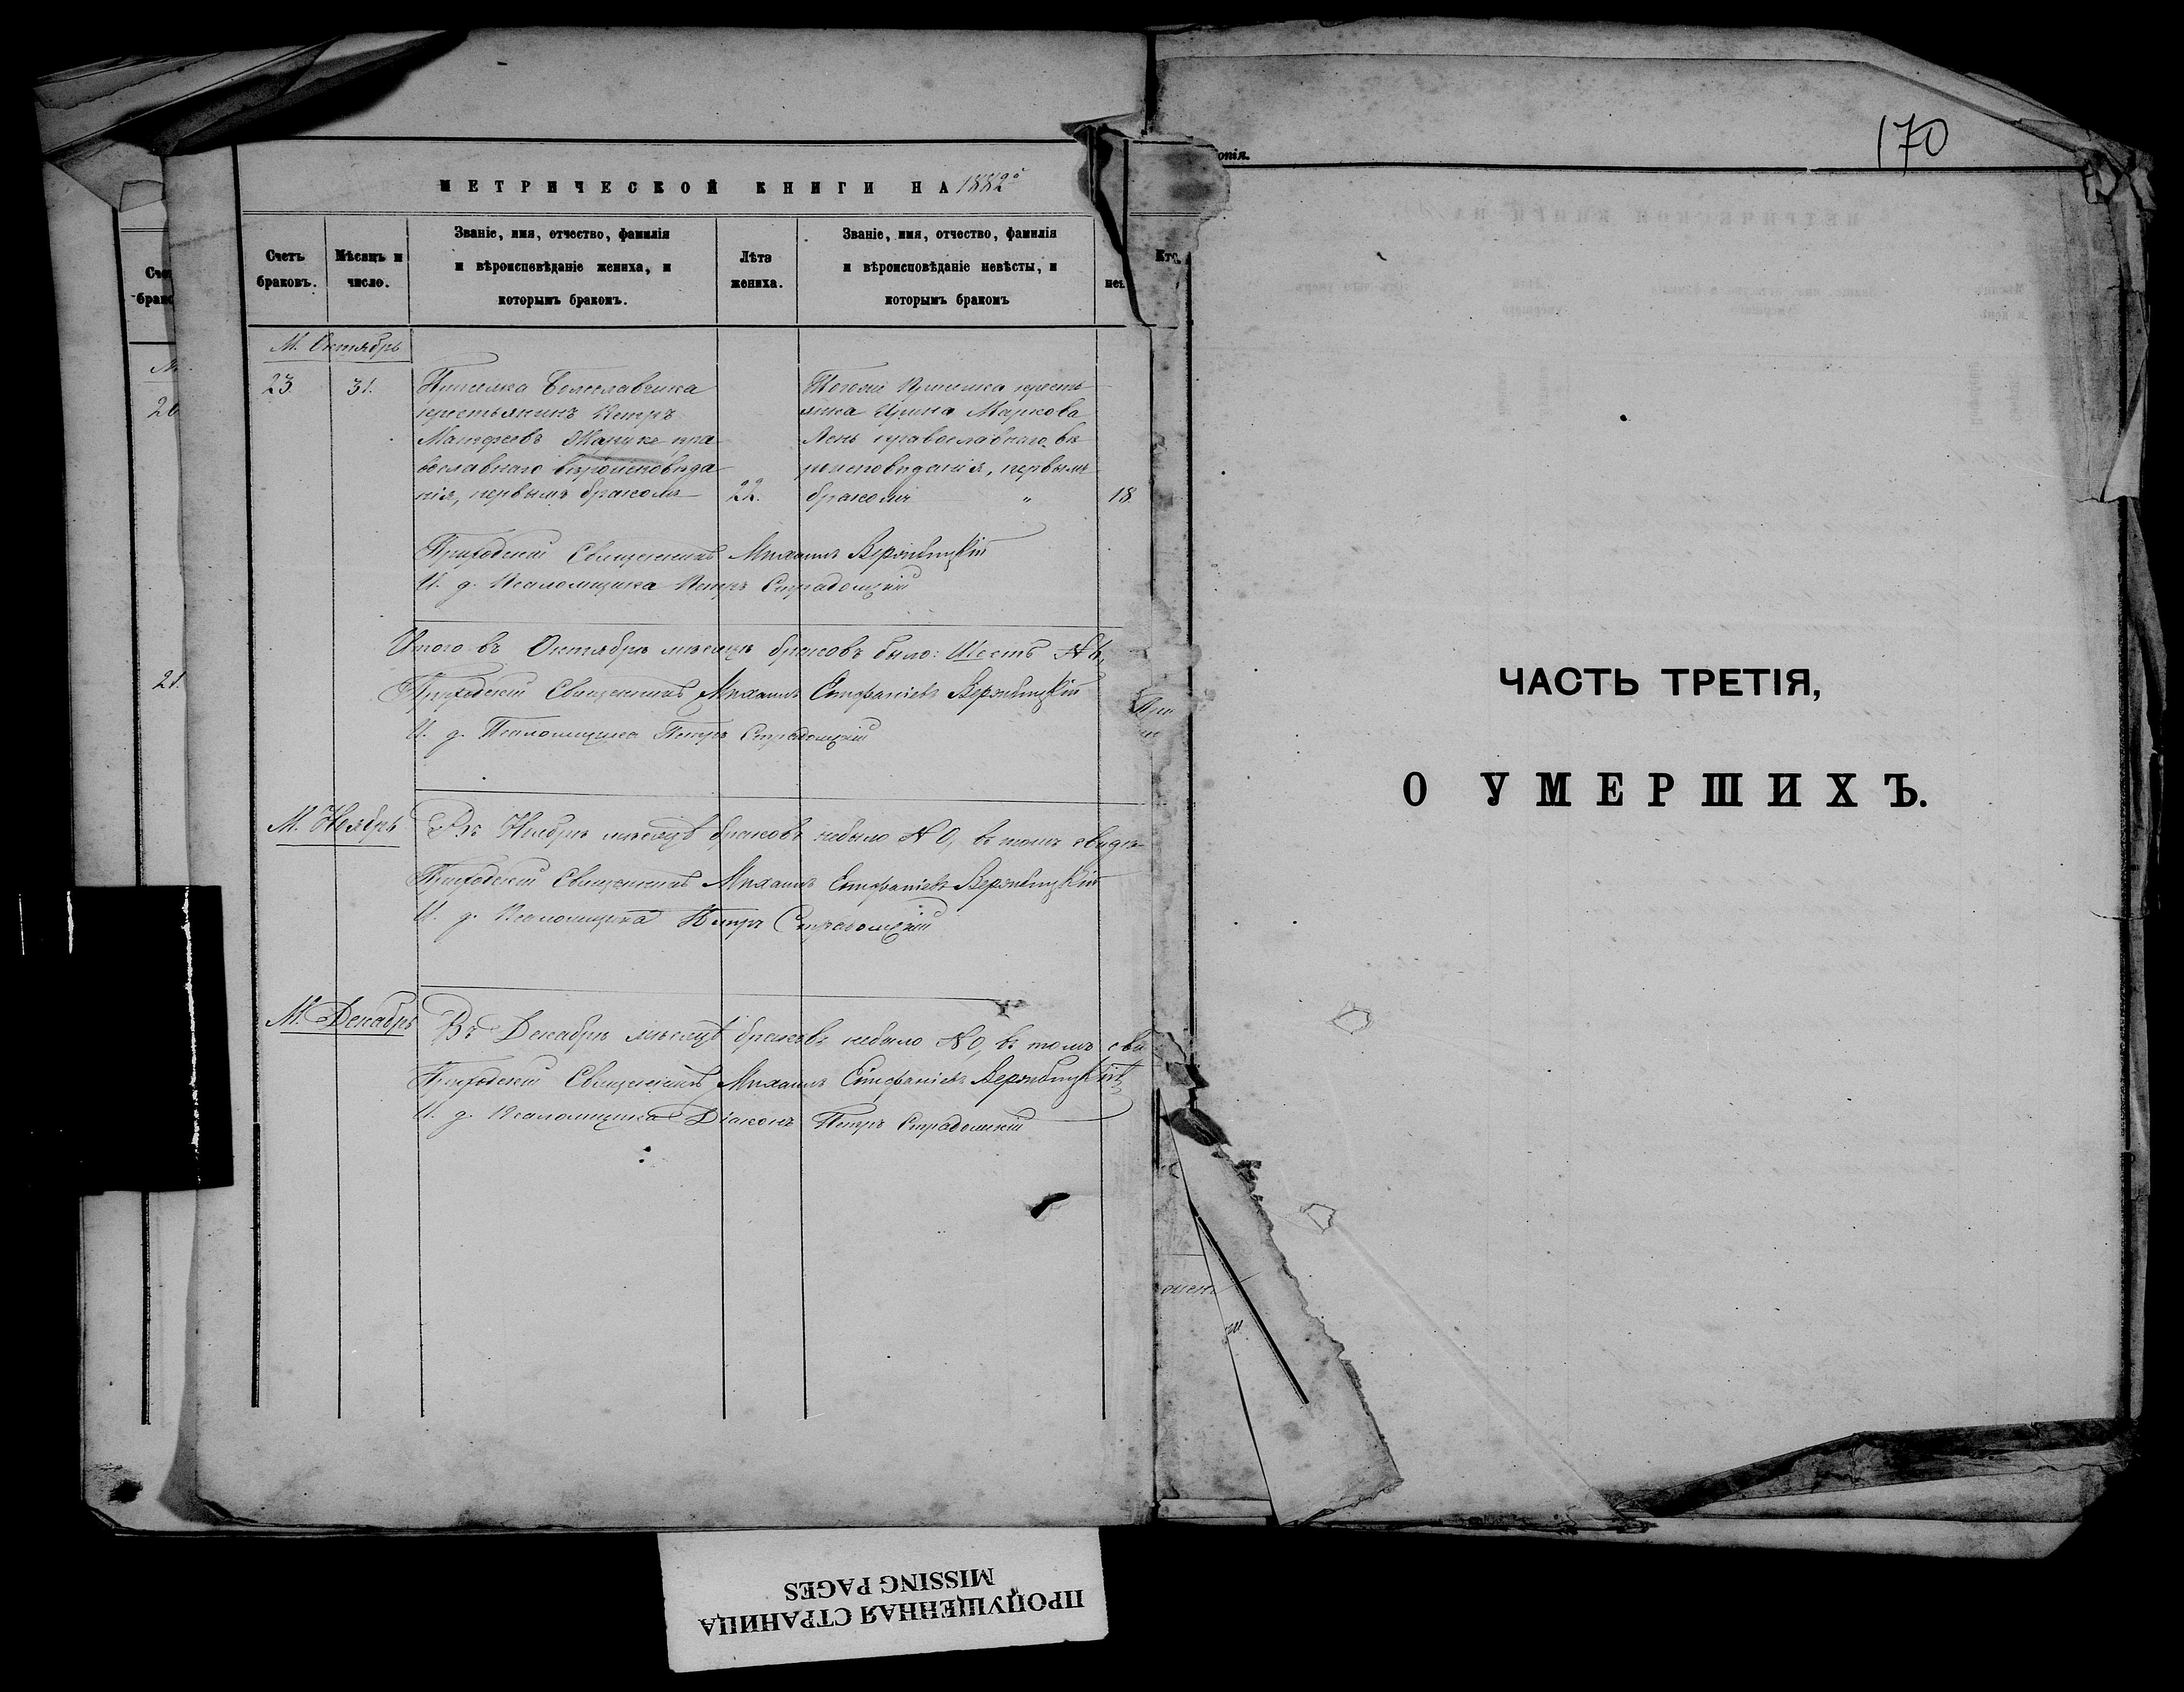 170
МЕТРИЧЕСКОЙ КНИГИ НА 1882
Счетъ браковъ.
Мѣсяцъ и число.
Званіе, имя, отчество, фамилія
и вѣроисповѣданіе жениха, и
которымъ бракомъ.
Лѣта жениха.
Званіе, имя, отчество, фамилія
и вѣроисповѣданіе невѣсты, и
которымъ бракомъ
Кто
М. Октябрь
23
31.
крестьянинъ Петръ
Матфеевъ пра
вославнаго вѣроисповѣда
нія, первымъ бракомъ
22.
Тогоже кресть
янка Ирина Маркова
православнаго вѣ
роисповѣданія, первымъ
бракомъ "
18
Приходскій Священникъ Михаилъ Вержбицкій
И. д. Псаломщика Петръ
Итого въ Октябрѣ мѣсяцѣ браковъ было: Шесть №6,
Приходскій Священникъ Михаилъ Стефаніевъ Вержбицкій
И. д. Псаломщика Петръ
М. Ноябрь
Въ Ноябрѣ мѣсяцѣ браковъ небыло № 0, въ томъ свидѣ
Приходскій Священникъ Михаилъ Стефаніевъ Вержбицкій
И. д. Псаломщика Петръ
М. Декабрь
Въ Декабрѣ мѣсяцѣ браковъ небыло № 0, въ томъ сви
Приходскій Священникъ Михаилъ Стефаніевъ Вержбицкій
И. д. Псаломщика Діаконъ Петръ
20
21.
ЧАСТЬ ТРЕТІЯ,
О УМЕРШИХЪ.
ПРОПУЩЕННАЯ СТРАНИЦА
MISSING PAGES